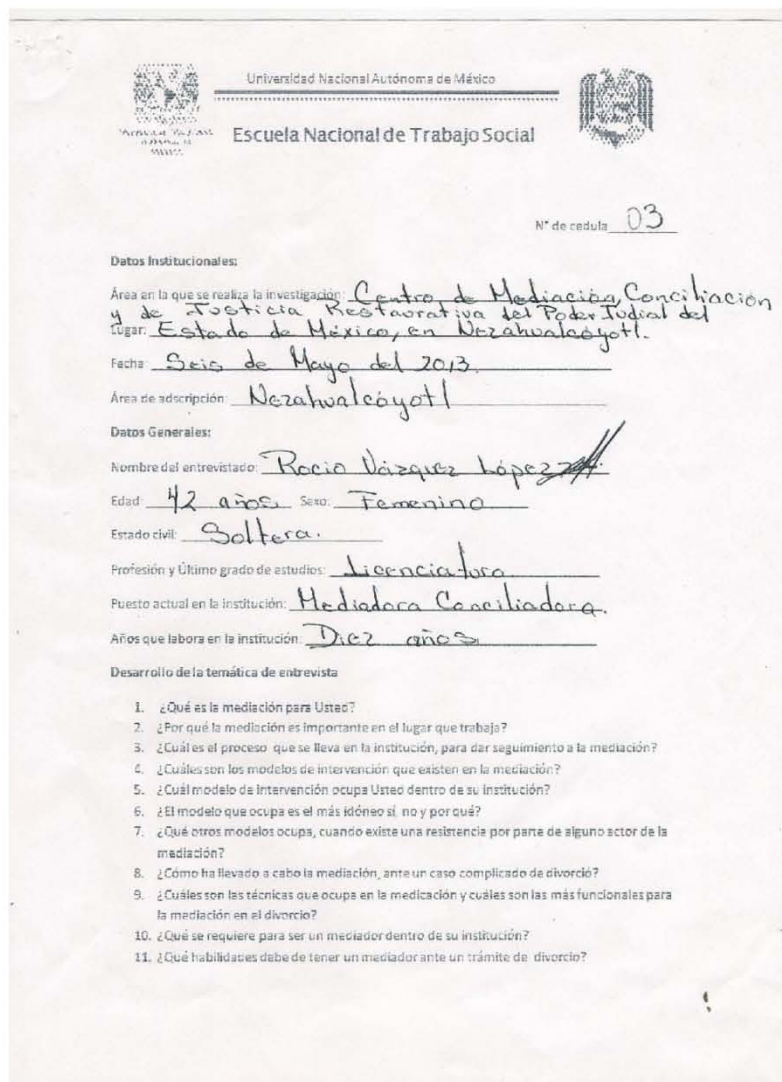 Universidad Nacional Autónoma de México
Escuela Nacional de Trabajo Social
N° de cedula 03
Datos Institucionales:
Área en la que se realiza la investigación: Centro de Mediación, Conciliación
y de Justicia Restaurativa del Poder Judial del
Lugar: Estado de México, en Nezahualcóyotl.
Fecha: Seis de Mayo del 2013.
Área de adscripción: Nezahualcóyotl
Datos Generales:
Nombre del entrevistado: Rocio Vázquez López
Edad: 42 años Sexo: Femenino
Estado civil: Soltera.
Profesión y Último grado de estudios: Licenciatura
Puesto actual en la institución: Mediadora Conciliadora.
Años que labora en la institución: Diez años
Desarrollo de la temática de entrevista
1. ¿Qué es la mediación para Usted?
2. ¿Por qué la mediación es importante en el lugar que trabaja?
3. ¿Cuál es el proceso que se lleva en la institución, para dar seguimiento a la mediación?
4. ¿Cuáles son los modelos de intervención que existen en la mediación?
5. ¿Cuál modelo de intervención ocupa Usted dentro de su institución?
6. ¿El modelo que ocupa es el más idóneo si, no y por qué?
7. ¿Qué otros modelos ocupa, cuando existe una resistencia por parte de alguno actor de la
mediación?
8. ¿Cómo ha llevado a cabo la mediación, ante un caso complicado de divorció?
9. ¿Cuáles son las técnicas que ocupa en la medicación y cuáles son las más funcionales para
la mediación en el divorcio?
10. ¿Qué se requiere para ser un mediador dentro de su institución?
11. ¿Qué habilidades debe de tener un mediador ante un trámite de divorcio?